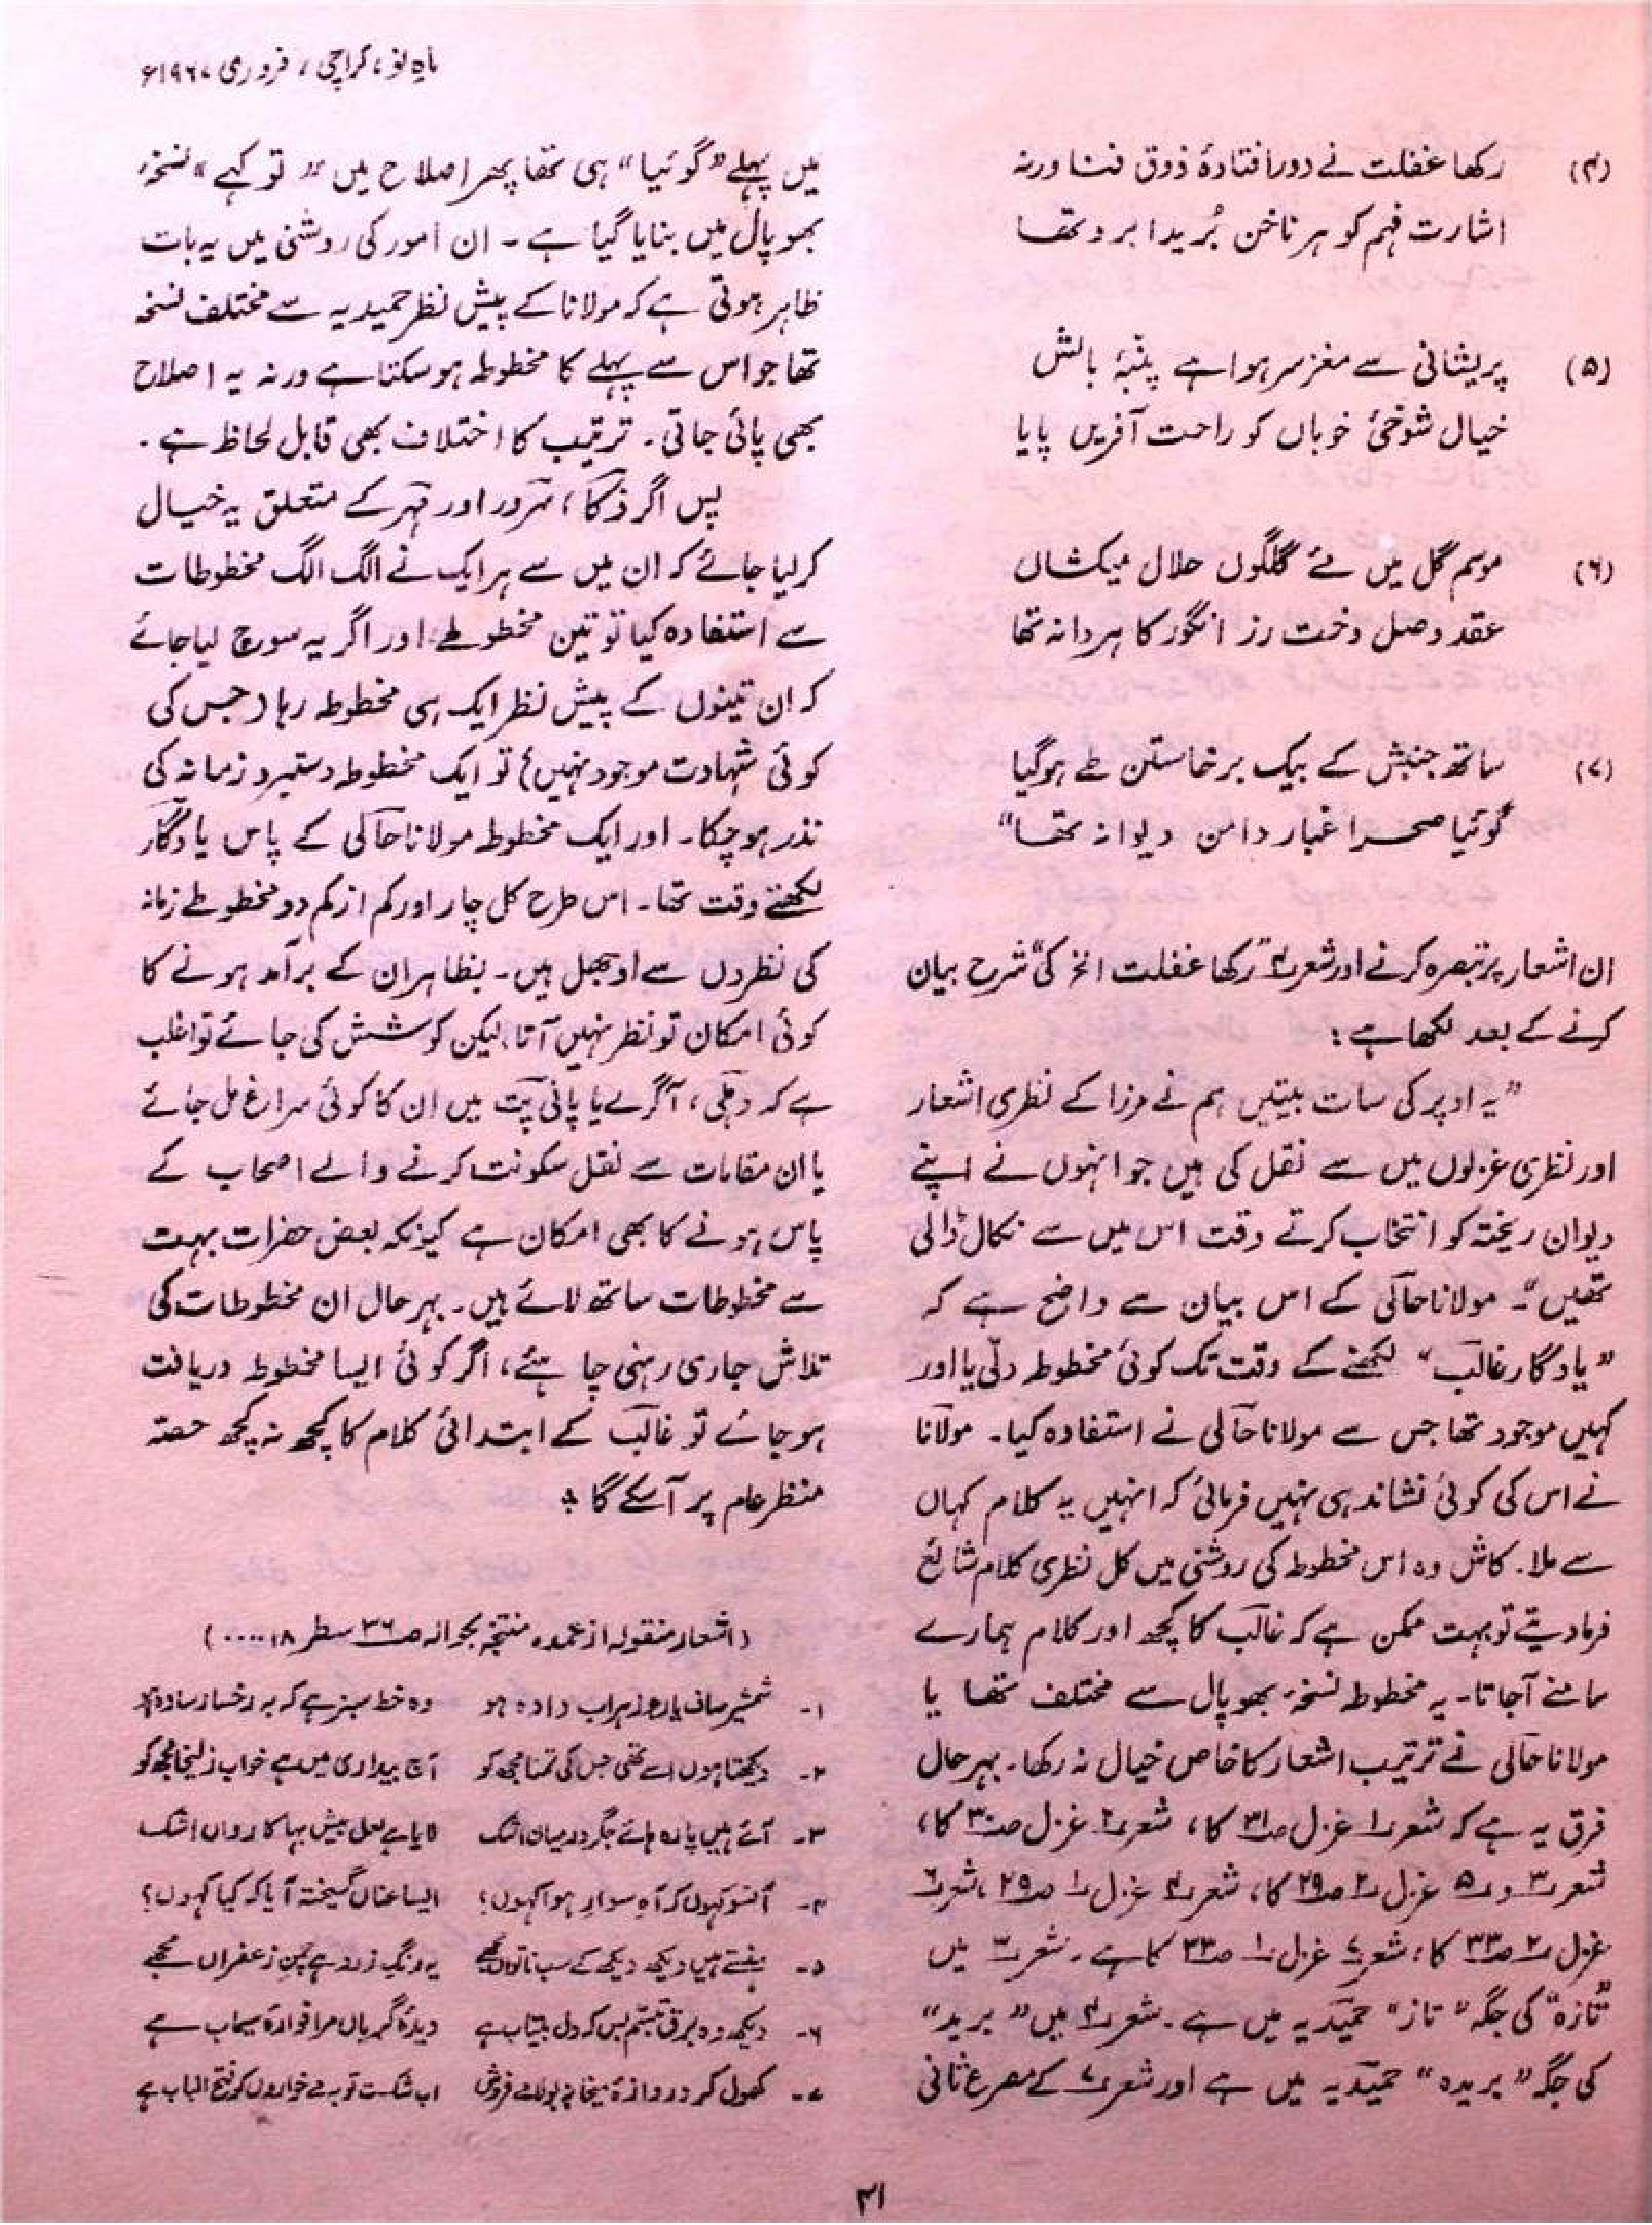 ماہِ نو، کراچی، فروری ۱۹۶۷ء
(۴) رکھا غفلت نے دور افتادۂ ذوق فنا ورنہ
اشارت فہم کو ہر ناخن بُریدا ابرو تھا
(۵) پریشانی سے مغز سر ہوا ہے پنبۂ بالش
خیال شوخیٔ خوباں کو راحت آفریں پایا
(۶) موسم گل میں مے گلگوں حلال میکشاں
عقد وصل دخت رز انگور کا ہر دانہ تھا
(۷) ساتھ جنبش کے بیک برخاستن طے ہوگیا
گوئیا صحرا غبار دامن دیوانہ تھا"
ان اشعار پر تبصرہ کرنے اور شعر ۴ "رکھا غفلت الخ کی" شرح بیان
کرنے کے بعد لکھا ہے :
"یہ اوپر کی سات بیتیں ہم نے مرزا کے نظری اشعار
اور نظری غزلوں میں سے نقل کی ہیں جو انہوں نے اپنے
دیوان ریختہ کو انتخاب کرتے وقت اس میں سے نکال ڈالی
تھیں"۔ مولانا حالی کے اس بیان سے واضح ہے کہ
"یادگار غالب" لکھنے کے وقت تک کوئی مخطوطہ دلّی یا اور
کہیں موجود تھا جس سے مولانا حالی نے استفادہ کیا۔ مولانا
نے اس کی کوئی نشاندہی نہیں فرمائی کہ انہیں یہ کلام کہاں
سے ملا۔ کاش وہ اس مخطوطہ کی روشنی میں کل نظری کلام شائع
فرما دیتے تو بہت ممکن ہے کہ غالب کا کچھ اور کلام ہمارے
سامنے آجاتا۔ یہ مخطوطہ نسخۂ بھوپال سے مختلف تھا یا
مولانا حالی نے ترتیب اشعار کا خاص خیال نہ رکھا۔ بہرحال
فرق یہ ہے کہ شعر ۱ غزل ص۳۱ کا، شعر ۲ غزل ص۳۰ کا،
شعر ۳ و ۵ غزل ۲ ص۲۹ کا، شعر ۴ غزل ۱ ص۲۹، شعر ۶
غزل ۲ ص۳۳ کا، شعر ۷ غزل ۱ ص۳۳ کا ہے۔ شعر ۳ میں
"تازہ" کی جگہ "تاز" حمیدیہ میں ہے۔ شعر ۴ میں "برید"
کی جگہ "بریدہ" حمیدیہ میں ہے اور شعر ۷ کے مصرع ثانی
میں پہلے "گوئیا" ہی تھا پھر اصلاح میں "تو کہے" نسخۂ
بھوپال میں بنایا گیا ہے۔ ان امور کی روشنی میں یہ بات
ظاہر ہوتی ہے کہ مولانا کے پیش نظر حمیدیہ سے مختلف نسخہ
تھا جو اس سے پہلے کا مخطوطہ ہو سکتا ہے ورنہ یہ اصلاح
بھی پائی جاتی۔ ترتیب کا اختلاف بھی قابل لحاظ ہے۔
پس اگر ذکا، سرور اور قہر کے متعلق یہ خیال
کر لیا جائے کہ ان میں سے ہر ایک نے الگ الگ مخطوطات
سے استفادہ کیا تو تین مخطوطے اور اگر یہ سوچ لیا جائے
کہ ان تینوں کے پیش نظر ایک ہی مخطوطہ رہا (جس کی
کوئی شہادت موجود نہیں) تو ایک مخطوطہ دستبرد زمانہ کی
نذر ہو چکا۔ اور ایک مخطوطہ مولانا حالی کے پاس یادگار
لکھتے وقت تھا۔ اس طرح کل چار اور کم از کم دو مخطوطے زمانہ
کی نظروں سے اوجھل ہیں۔ بظاہر ان کے برآمد ہونے کا
کوئی امکان تو نظر نہیں آتا، لیکن کوشش کی جائے تو اغلب
ہے کہ دہلی، آگرے یا پانی پت میں ان کا کوئی سراغ مل جائے
یا ان مقامات سے نقل سکونت کرنے والے اصحاب کے
پاس ہونے کا بھی امکان ہے کیونکہ بعض حضرات بہت
سے مخطوطات ساتھ لائے ہیں۔ بہرحال ان مخطوطات کی
تلاش جاری رہنی چاہئے، اگر کوئی ایسا مخطوطہ دریافت
ہو جائے تو غالب کے ابتدائی کلام کا کچھ نہ کچھ حصہ
منظر عام پر آ سکے گا ؛
(اشعار منقولہ از عمدہ منتخبہ بحوالہ ص۳۶ سطر ۱۸....)
۱- شمشیر صاف یار جو زہراب دادہ ہو وہ خط سبز ہے کہ بہ رخسار سادہ ہو
۲- دیکھتا ہوں اسے تھی جس کی تمنا مجھ کو آج بیداری میں ہے خواب زلیخا مجھ کو
۳- آئے ہیں پارہ ہائے جگر درمیان اشک لایا ہے لعل بیش بہا کاروان اشک
۴- آنسو کہوں کہ آہ سوارِ ہوا کہوں؟ ایسا عناں گسیختہ آیا کہ کیا کہوں؟
۵- ہنستے ہیں دیکھ دیکھ کے سب ناتواں مجھے یہ رنگِ زرد ہے چمنِ زعفراں مجھے
۶- دیکھ وہ برق تبسم بس کہ دل بیتاب ہے دیدۂ گریاں مرا فوارۂ سیماب ہے
۷- کھول کر دروازۂ میخانہ بولا مے فروش اب شکست توبہ مے خواروں کو فتح الباب ہے
۴۱